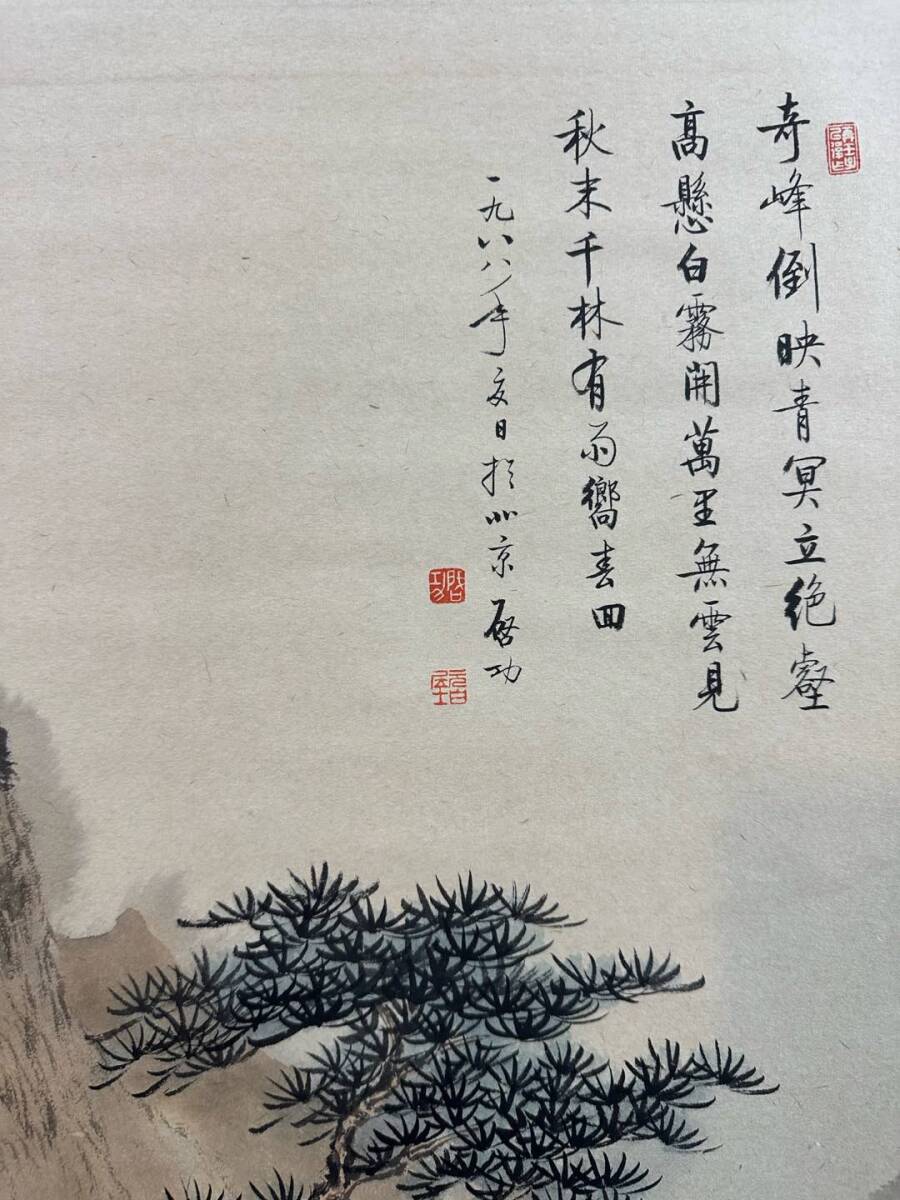 奇峰倒映青冥立绝壑
髙懸白霧開萬里無雲見
秋末千林有雨嚮春回
一九八八年夏日於北京 啓功
啓功